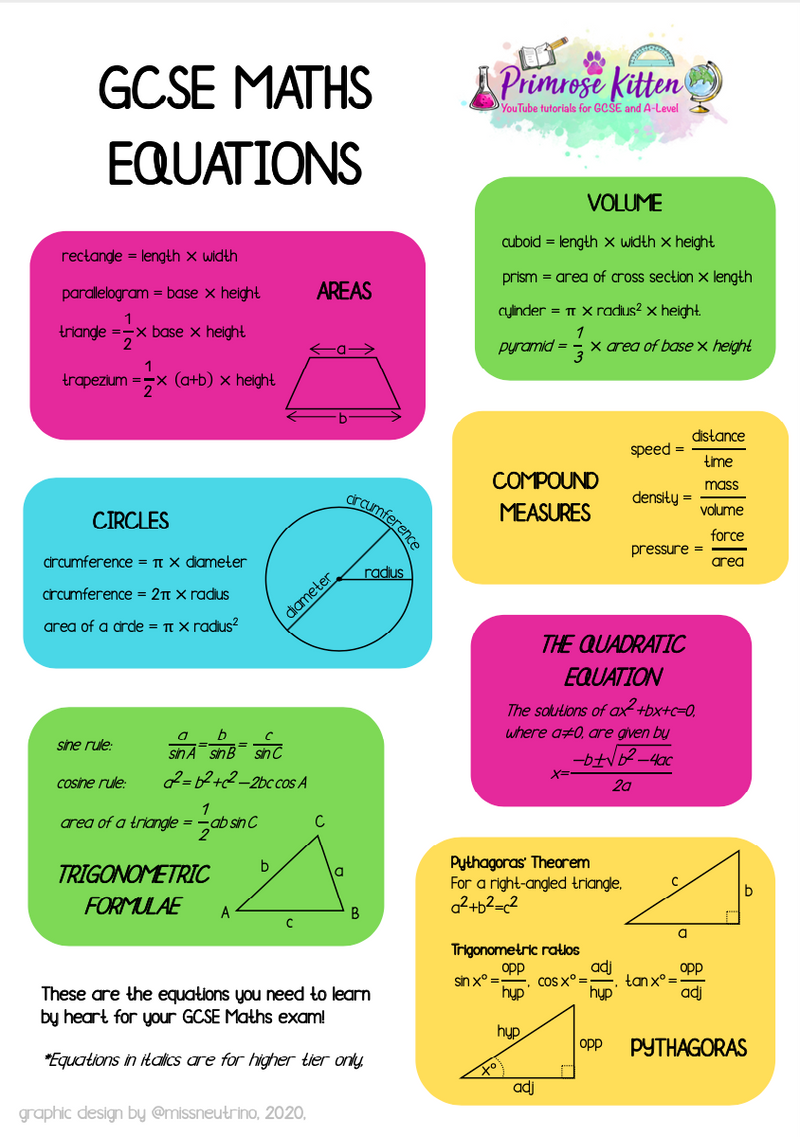 GCSE MATHS
EQUATIONS
Primrose Kitten
YouTube tutorials for GCSE and A-Level
rectangle = length × width
parallelogram = base × height
AREAS
triangle = 1/2 × base × height
trapezium = 1/2 × (a+b) × height
a
b
VOLUME
cuboid = length × width × height
prism = area of cross section × length
cylinder = π × radius² × height
pyramid = 1/3 × area of base × height
COMPOUND
MEASURES
speed = distance/time
density = mass/volume
pressure = force/area
CIRCLES
circumference = π × diameter
circumference = 2π × radius
area of a circle = π × radius²
circumference
radius
diameter
THE QUADRATIC
EQUATION
The solutions of ax²+bx+c=0,
where a≠0, are given by
x= −b±√b²−4ac/2a
sine rule: a/sin A = b/sin B = c/sin C
cosine rule: a²=b²+c²−2bc cos A
area of a triangle = 1/2 ab sin C
TRIGONOMETRIC
FORMULAE
C
b
a
A
B
c
Pythagoras' Theorem
For a right-angled triangle,
a²+b²=c²
c
b
a
Trigonometric ratios
sin x° = opp/hyp, cos x° = adj/hyp, tan x° = opp/adj
hyp
opp
x°
adj
PYTHAGORAS
These are the equations you need to learn
by heart for your GCSE Maths exam!
*Equations in italics are for higher tier only,
graphic design by @missneutrino, 2020,